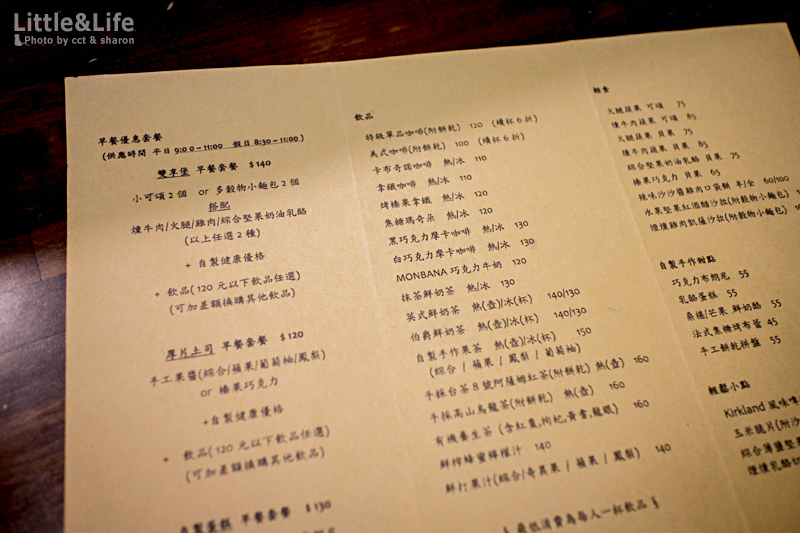 Little&Life
Photo by cct & sharon
早餐優惠套餐
(供應時間 平日 9:00~11:00 假日 8:30~11:00)
雙享堡 早餐套餐 $140
小可頌2個 or 多穀物小麵包2個
搭配
燻牛肉/火腿/雞肉/綜合堅果奶油乳酪
(以上任選2種)
+ 自製健康優格
+ 飲品(120元以下飲品任選)
(可加差額換購其他飲品)
厚片土司 早餐套餐 $120
手工果醬(綜合/蘋果/葡萄柚/鳳梨)
or 榛果巧克力
+自製健康優格
+ 飲品(120元以下飲品任選)
(可加差額換購其他飲品)
自製蛋糕 早餐套餐 $130
飲品
特級單品咖啡(附餅乾) 120 (續杯6折)
美式咖啡(附餅乾) 100 (續杯6折)
卡布奇諾咖啡 熱/冰 110
拿鐵咖啡 熱/冰 110
烤榛果拿鐵 熱/冰 120
焦糖瑪奇朵 熱/冰 120
黑巧克力摩卡咖啡 熱/冰 130
白巧克力摩卡咖啡 熱/冰 130
MONBANA 巧克力牛奶 120
抹茶鮮奶茶 熱/冰 130
英式鮮奶茶 熱(壺)/冰(杯) 140/130
伯爵鮮奶茶 熱(壺)/冰(杯) 140/130
自製手作果茶 熱(壺)/冰(杯) 150
(綜合 / 蘋果 / 鳳梨 / 葡萄柚)
手採台茶8號阿薩姆紅茶(附餅乾) 熱(壺) 160
手採高山烏龍茶(附餅乾) 熱(壺) 160
有機養生茶 (含紅棗,枸杞,黃耆,龍眼) 160
鮮榨蜂蜜檸檬汁 140
鮮打果汁(綜合/奇異果 / 蘋果 / 鳳梨) 140
§ 最低消費為每人一杯飲品 §
輕食
火腿蔬果 可頌 75
燻牛肉蔬果 可頌 85
火腿蔬果 貝果 75
燻牛肉蔬果 貝果 85
綜合堅果奶油乳酪 貝果 75
榛果巧克力 貝果 65
辣味沙沙醬雞肉口袋餅 半/全 60/100
水果堅果紅酒醋沙拉(附穀物小麵包)
煙燻雞肉凱薩沙拉(附穀物小麵包)
自製手作甜點
巧克力布朗尼 55
乳酪蛋糕 55
桑椹/芒果 鮮奶酪 55
法式焦糖烤布蕾 45
手工餅乾拼盤 55
輕鬆小點
Kirkland 風味啤
玉米脆片(附沙
綜合薄鹽堅
煙燻乳酪切